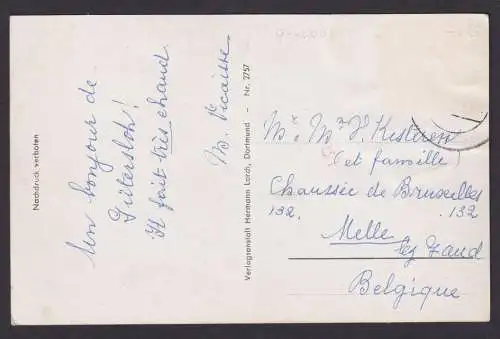 Nachdruck verboten
Un bonjour de
Gütersloh!
Il fait très chaud
M. Vicaisse
Verlagsanstalt Hermann Lorch, Dortmund - Nr. 2757
Mr. Mme V. Kesteren
et famille!
Chaussée de Bruxelles
132. .132
Melle
lez Gand
Belgique